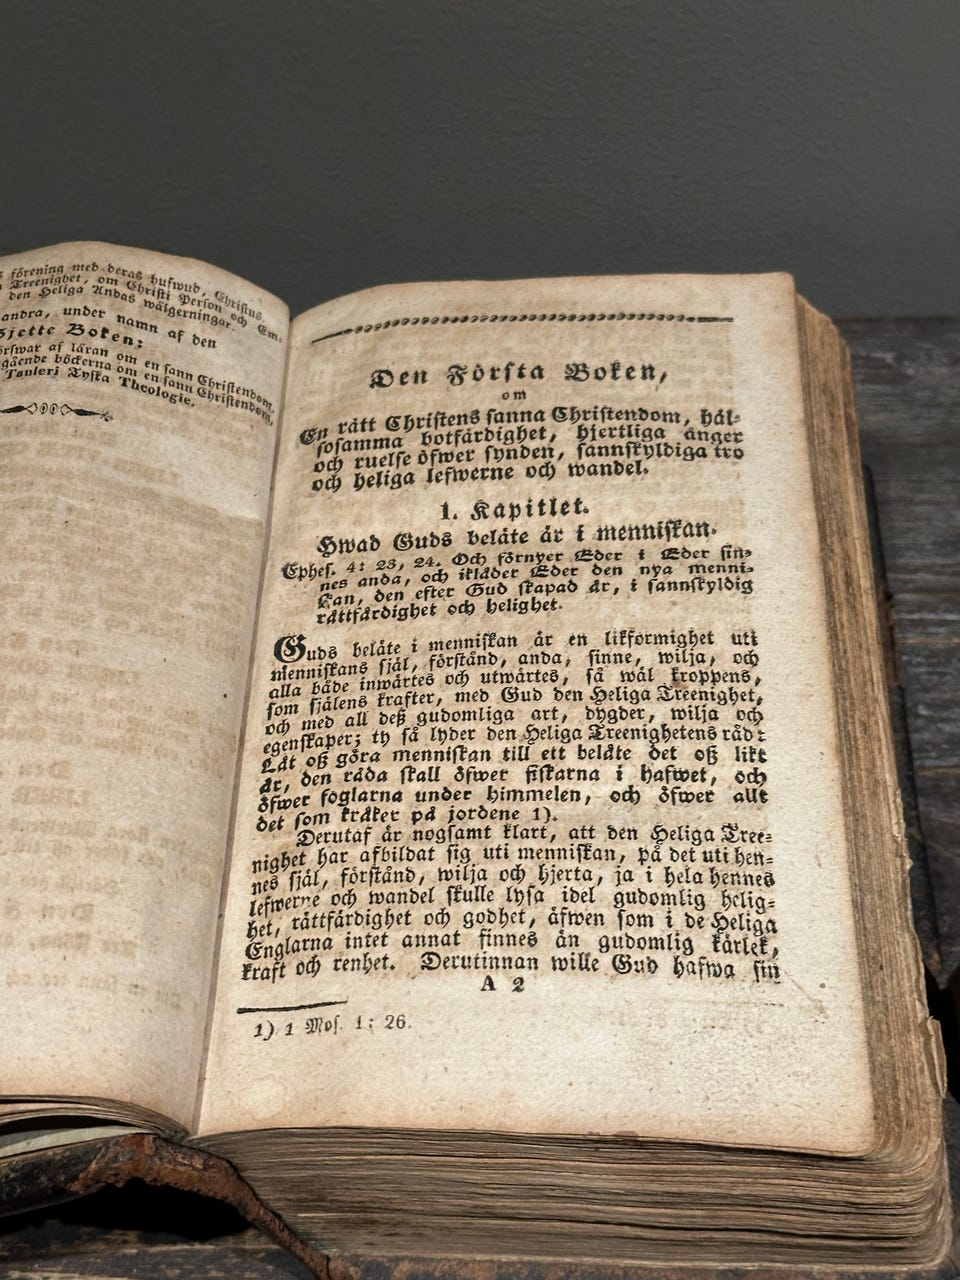 förening med deras hufwud, Christus
Treenighet, om Christi Person och Em-
den Heliga Andas wälgerningar.
andra, under namn af den
Sjette Boken:
förswar af läran om en sann Christendom.
gående böckerna om en sann Christendom,
Tauleri Tyska Theologie.
Den Första Boken,
om
En rätt Christens sanna Christendom, häl-
sosamma botfärdighet, hjertliga ånger
och ruelse öfwer synden, sannskyldiga tro
och heliga lefwerne och wandel.
1. Kapitlet.
Hwad Guds beläte är i menniskan.
Ephes. 4: 23, 24. Och förnyer Eder i Eder sin-
nes anda, och ikläder Eder den nya menni-
skan, den efter Gud skapad är, i sannskyldig
rättfärdighet och helighet.
Guds beläte i menniskan är en likformighet uti
menniskans själ, förstånd, anda, sinne, wilja, och
alla både inwärtes och utwärtes, så wäl kroppens,
som själens krafter, med Gud den Heliga Treenighet,
och med all deß gudomliga art, dygder, wilja och
egenskaper; ty så lyder den Heliga Treenighetens råd:
Låt oß göra menniskan till ett beläte det oß likt
är, den råda skall öfwer fiskarna i hafwet, och
öfwer foglarna under himmelen, och öfwer allt
det som kräker på jordene 1).
Derutaf är nogsamt klart, att den Heliga Tree-
nighet har afbildat sig uti menniskan, på det uti hen-
nes själ, förstånd, wilja och hjerta, ja i hela hennes
lefwerne och wandel skulle lysa idel gudomlig helig-
het, rättfärdighet och godhet, äfwen som i de Heliga
Englarna intet annat finnes än gudomlig kärlek,
kraft och renhet. Derutinnan wille Gud hafwa sin
A 2
1) 1 Mos. 1: 26.